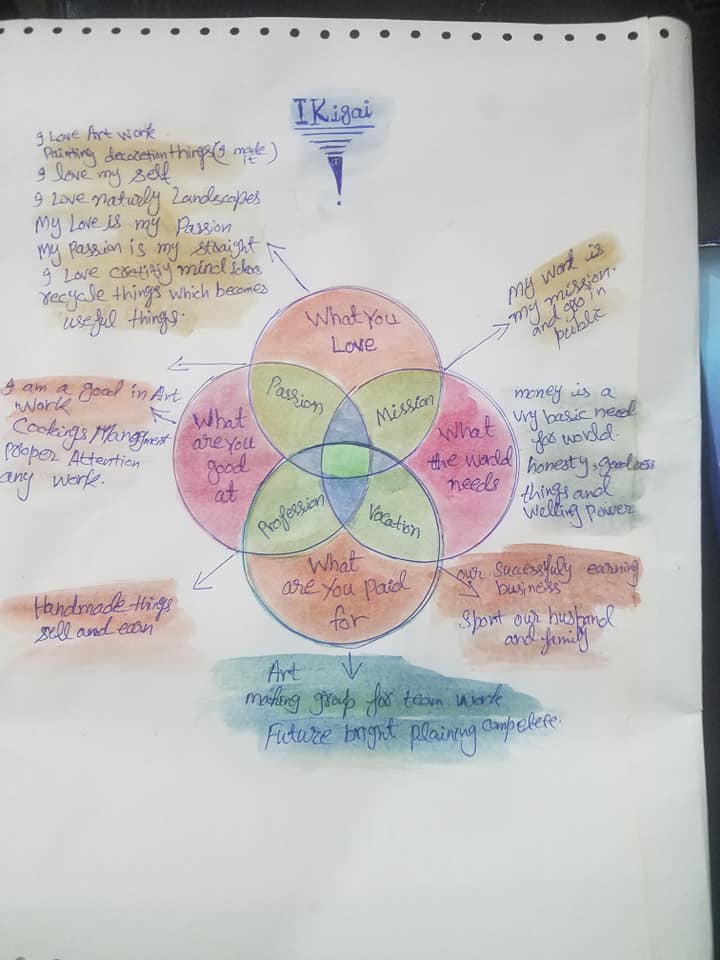 IKigai
I Love Art Work
Painting decoretion things (I made it)
I love my self
I Love naturly Landscapes
My Love is my Passion
My Passion is my straight
I Love cretitiy mind ideas
recycle things which becomes
useful things.
My work is
my mission.
and go in
public
What You
Love
Passion
Mission
I am a good in Art
Work
Cookings Mangment
proper Attention
any work.
What
are you
good
at
What
the world
needs
money is a
vry basic need
for world.
honesty, goodness
things and
Welling Power
Profession
Vocation
What
are You paid
for
Handmade things
sell and earn
our Successfuly earning
business
Sport our husband
and family
Art
making group for team work
Future bright plaining competere.